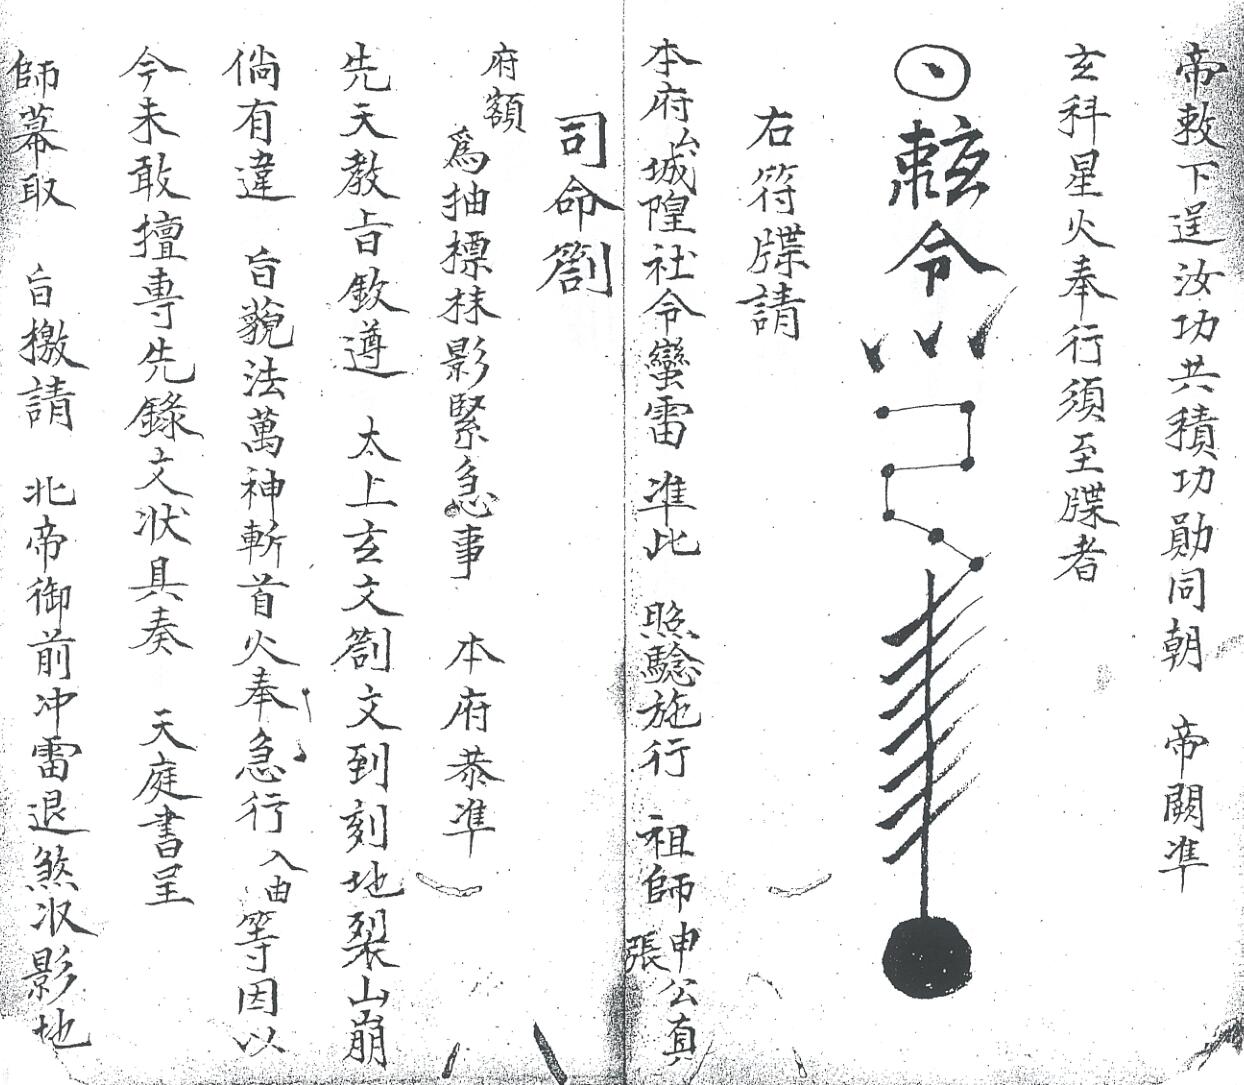 帝敕下逞汝功共積功勛同朝 帝闕準
玄科星火奉行須至牒者
令
右符牒請
本府城隍社令蠻雷 準此 照驗施行 祖師張申公真
司命劄
府額
為抽摽抹影緊急事 本府恭準
先天教旨欽遵 太上玄文劄文到刻地裂山崩
倘有違 旨藐法萬神斬首火奉急行入由等因以
今未敢擅專先錄文狀具奏 天庭書呈
師幕取 旨檄請 北帝御前冲雷退煞收影地